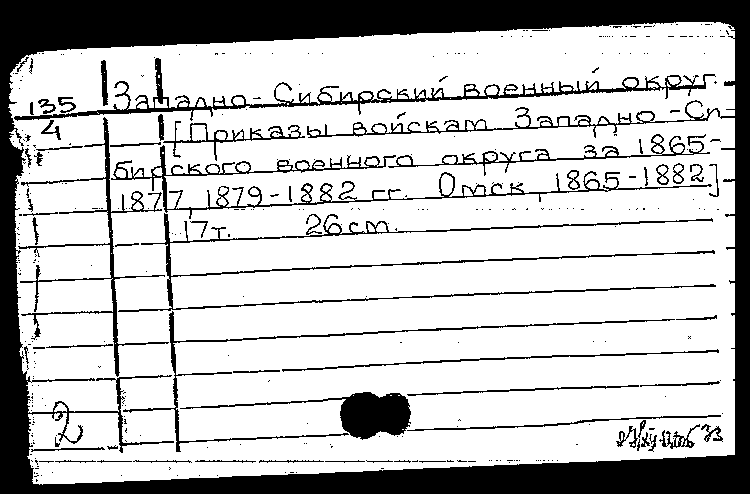 135 Западно-Сибирский военный округ.
4 [Приказы войскам Западно-Си-
бирского военного округа за 1865-
1877, 1879-1882 гг. Омск, 1865-1882]
17т. 26см.
2